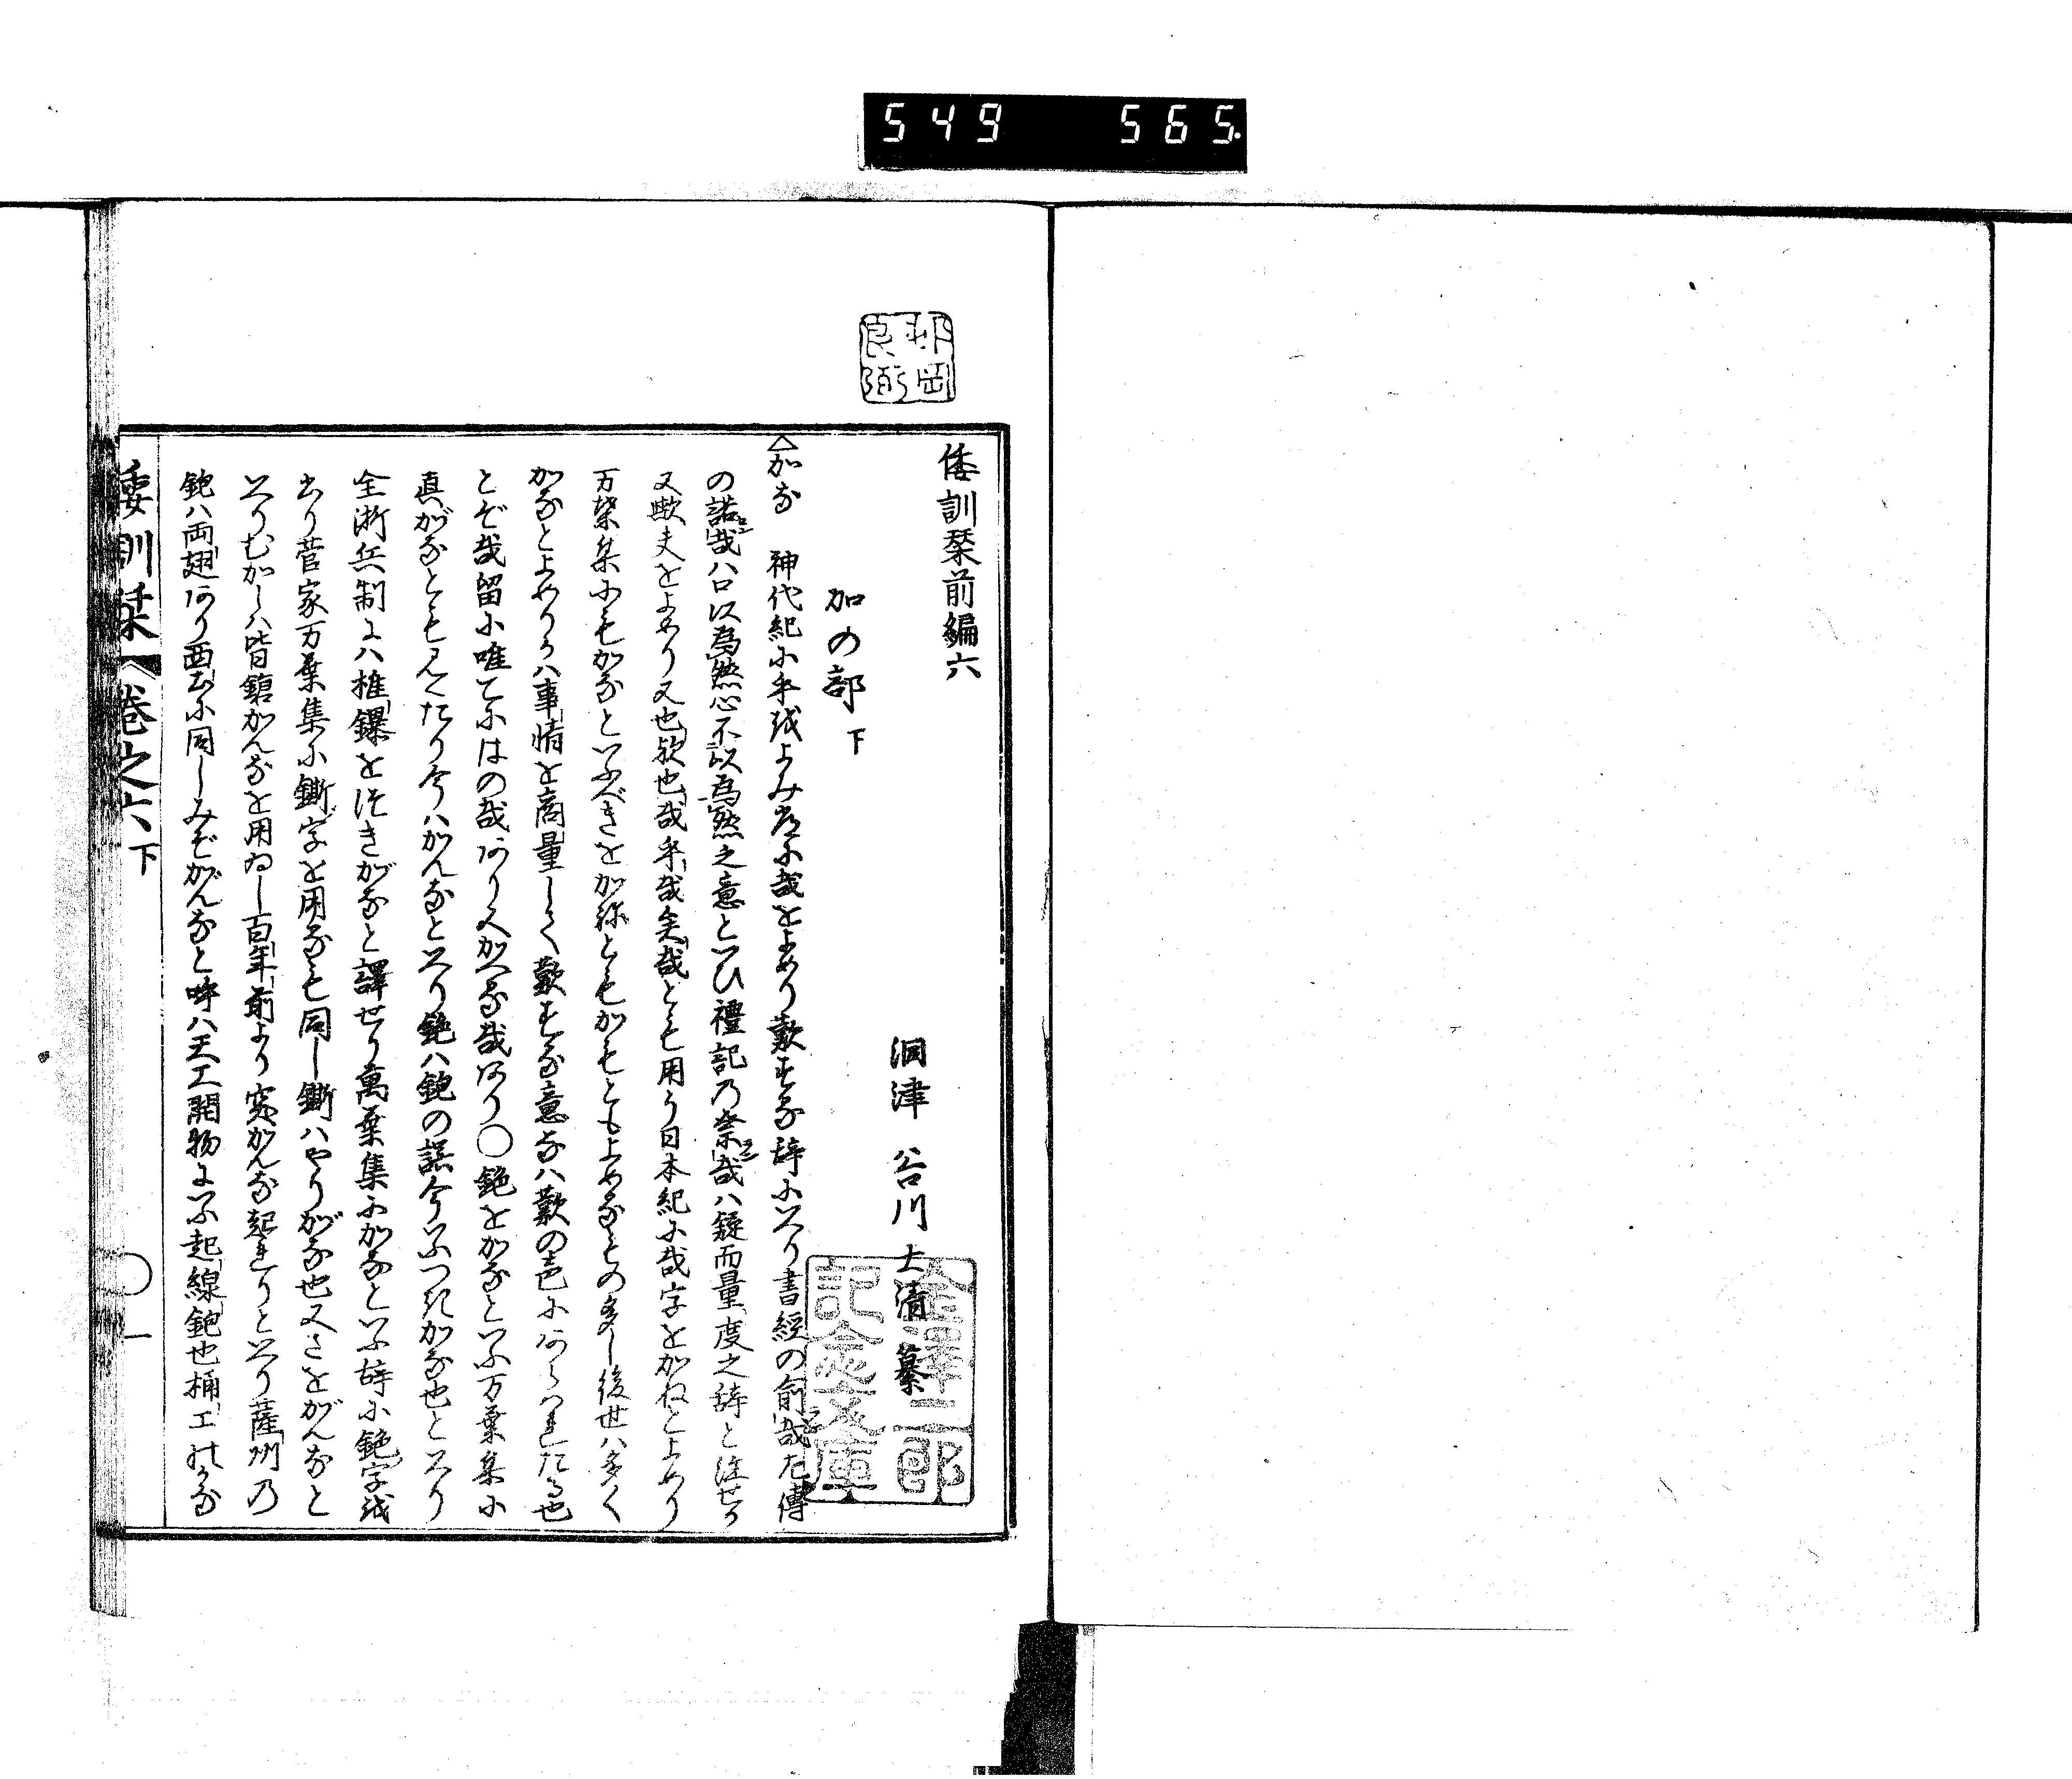 549 565.
邨岡良弼
倭訓栞前編六
洞津 谷川士清 纂
金澤庄三郎記念文庫
加の部 下
加な 神代紀に乎或よみ居に哉をよめり歎ずる辞にいへり書經の俞哉左傳
の諾哉ハ口以爲然心不以爲然之意といひ禮記乃祭哉ハ疑而量度之辞と注せり
又歟夫をよめり又也欤也哉乎哉矣哉とも用う日本紀に哉字をかねとよめり
万葉集にもかなといふべきをか祢ともかもともよめるもの多し後世ハ多く
かなとよめりうハ事情を商量して歎ずる意なハ歎の声にあらハれたる也
とぞ哉留に唯てにはの哉あり又かへる哉あり〇鉋をかなといふ万葉集に
真がなとも見えたり今ハかんなといへり鉋ハ鉋の誤今いふつきかな也といへり
全浙兵制にハ推鑤をつきがなと譯せり萬葉集にかなといふ辞に鉋字或
書り菅家万葉集に鐁字を用るも同し鐁ハやりがな也又さをがんなと
いりむかしハ皆鎗かんなを用ゐし百年前より突かんな起れりといへり薩州乃
鉋ハ両翅あり西土に同しみぞがんなと呼ハ天工開物にいふ起線鉋也桶工
倭訓栞 巻之六 下 〇 一